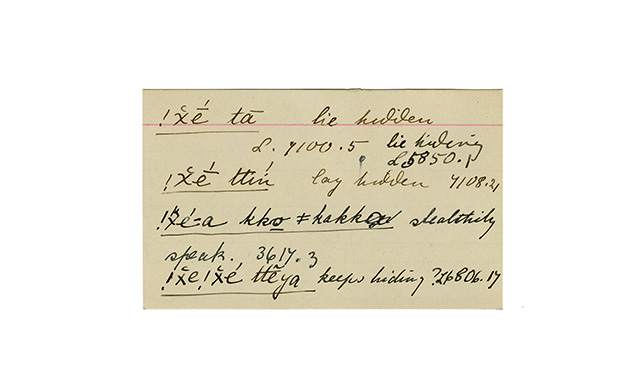 !x̌é tā lie hidden
L. 7100.5 lie hiding
L 5850.1
!x̌é ttín lay hidden 7108.21
!x̌é=a kko ǂkakken stealthily
speak. 3617.3
!x̌e!x̌é ttẽya keeps hiding ?L6806.17